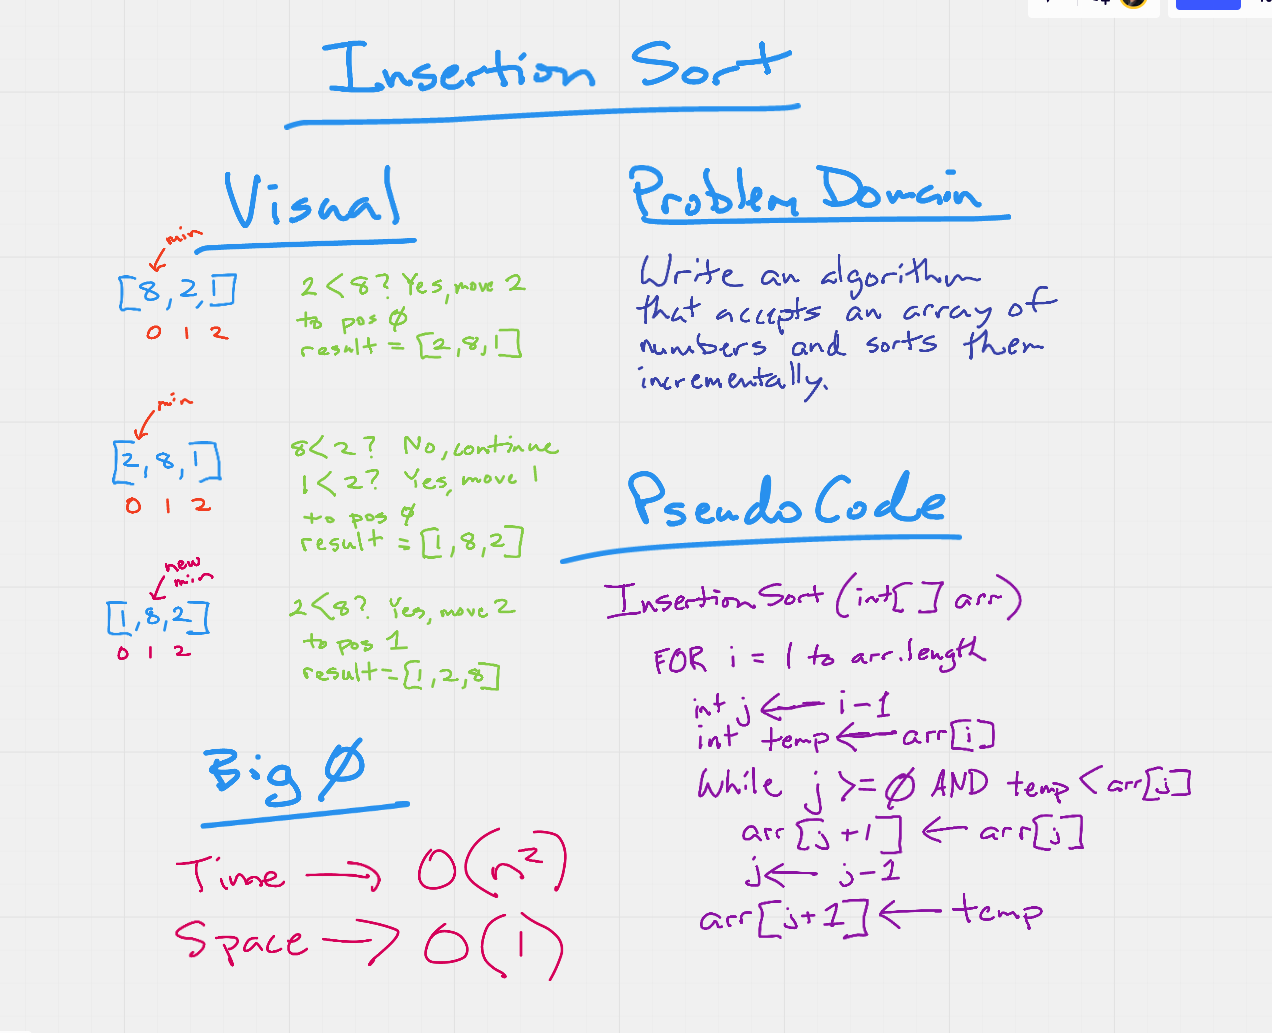 Insertion Sort
Visual
min
[8, 2, 1]
0 1 2
2 < 8? Yes, move 2
to pos 0
result = [2, 8, 1]
min
[2, 8, 1]
0 1 2
8 < 2? No, continue
1 < 2? Yes, move 1
to pos 0
result = [1, 8, 2]
new
min
[1, 8, 2]
0 1 2
2 < 8? Yes, move 2
to pos 1
result = [1, 2, 8]
Big O
Time → O(n²)
Space → O(1)
Problem Domain
Write an algorithm
that accepts an array of
numbers and sorts them
incrementally.
Pseudo Code
InsertionSort (int[] arr)
FOR i = 1 to arr.length
int j ← i-1
int temp ← arr[i]
While j >= 0 AND temp < arr[j]
arr[j+1] ← arr[j]
j ← j-1
arr[j+1] ← temp